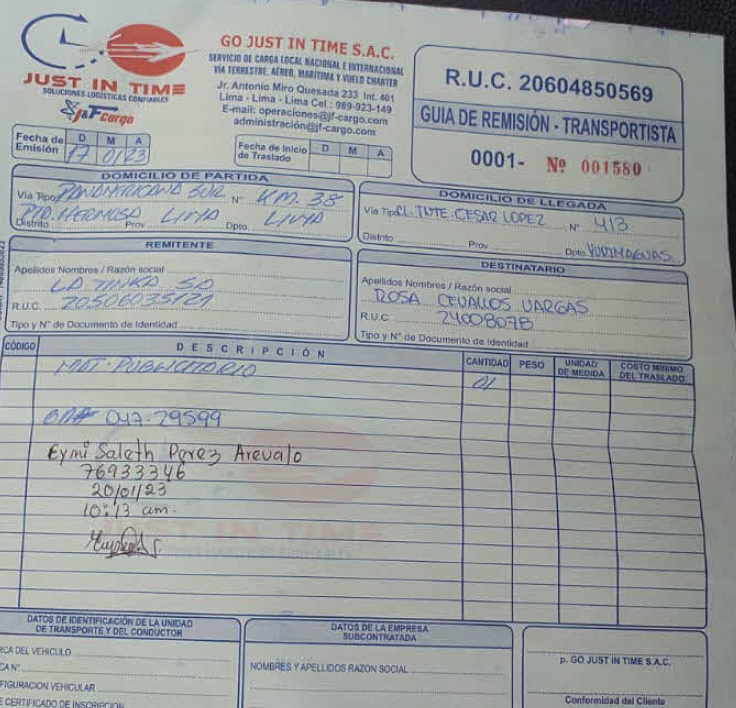 JUST IN TIME
SOLUCIONES LOGÍSTICAS CONFIABLES
J&F Cargo
GO JUST IN TIME S.A.C.
SERVICIO DE CARGA LOCAL NACIONAL E INTERNACIONAL
VÍA TERRESTRE, AÉREO, MARÍTIMA Y VUELO CHARTER
Jr. Antonio Miro Quesada 233 Int. 401
Lima - Lima - Lima Cel.: 989-923-149
E-mail: operaciones@jf-cargo.com
administración@jf-cargo.com
R.U.C. 20604850569
GUIA DE REMISIÓN - TRANSPORTISTA
0001- Nº 001580
Fecha de Emisión D M A
17 01 23
Fecha de Inicio de Traslado D M A
DOMICILIO DE PARTIDA
Vía Tipo PANAMERICANA SUR Nº KM. 38
PTO. HERMOSA LIMA LIMA
Distrito Prov. Dpto.
DOMICILIO DE LLEGADA
Vía Tipo CL. TNTE CESAR LOPEZ Nº 413
Distrito Prov. Dpto. YURIMAGUAS
REMITENTE
Apellidos Nombres / Razón social
LA TINKA SA
R.U.C. 20506035121
Tipo y N° de Documento de Identidad
DESTINATARIO
Apellidos Nombres / Razón social
ROSA CEVALLOS VARGAS
R.U.C. 24008078
Tipo y N° de Documento de Identidad
CÓDIGO DESCRIPCIÓN CANTIDAD PESO UNIDAD DE MEDIDA COSTO MINIMO DEL TRASLADO
MAT. PUBLICITARIO 01
047-29599
Eymi Saleth Perez Arevalo
76933346
20/01/23
10:13 am.
JUST IN TIME
DATOS DE IDENTIFICACIÓN DE LA UNIDAD
DE TRANSPORTE Y DEL CONDUCTOR
RCA DEL VEHICULO
CA N°
FIGURACION VEHICULAR
E CERTIFICADO DE INSCRIPCION
DATOS DE LA EMPRESA
SUBCONTRATADA
NOMBRES Y APELLIDOS RAZON SOCIAL
p. GO JUST IN TIME S.A.C.
Conformidad del Cliente